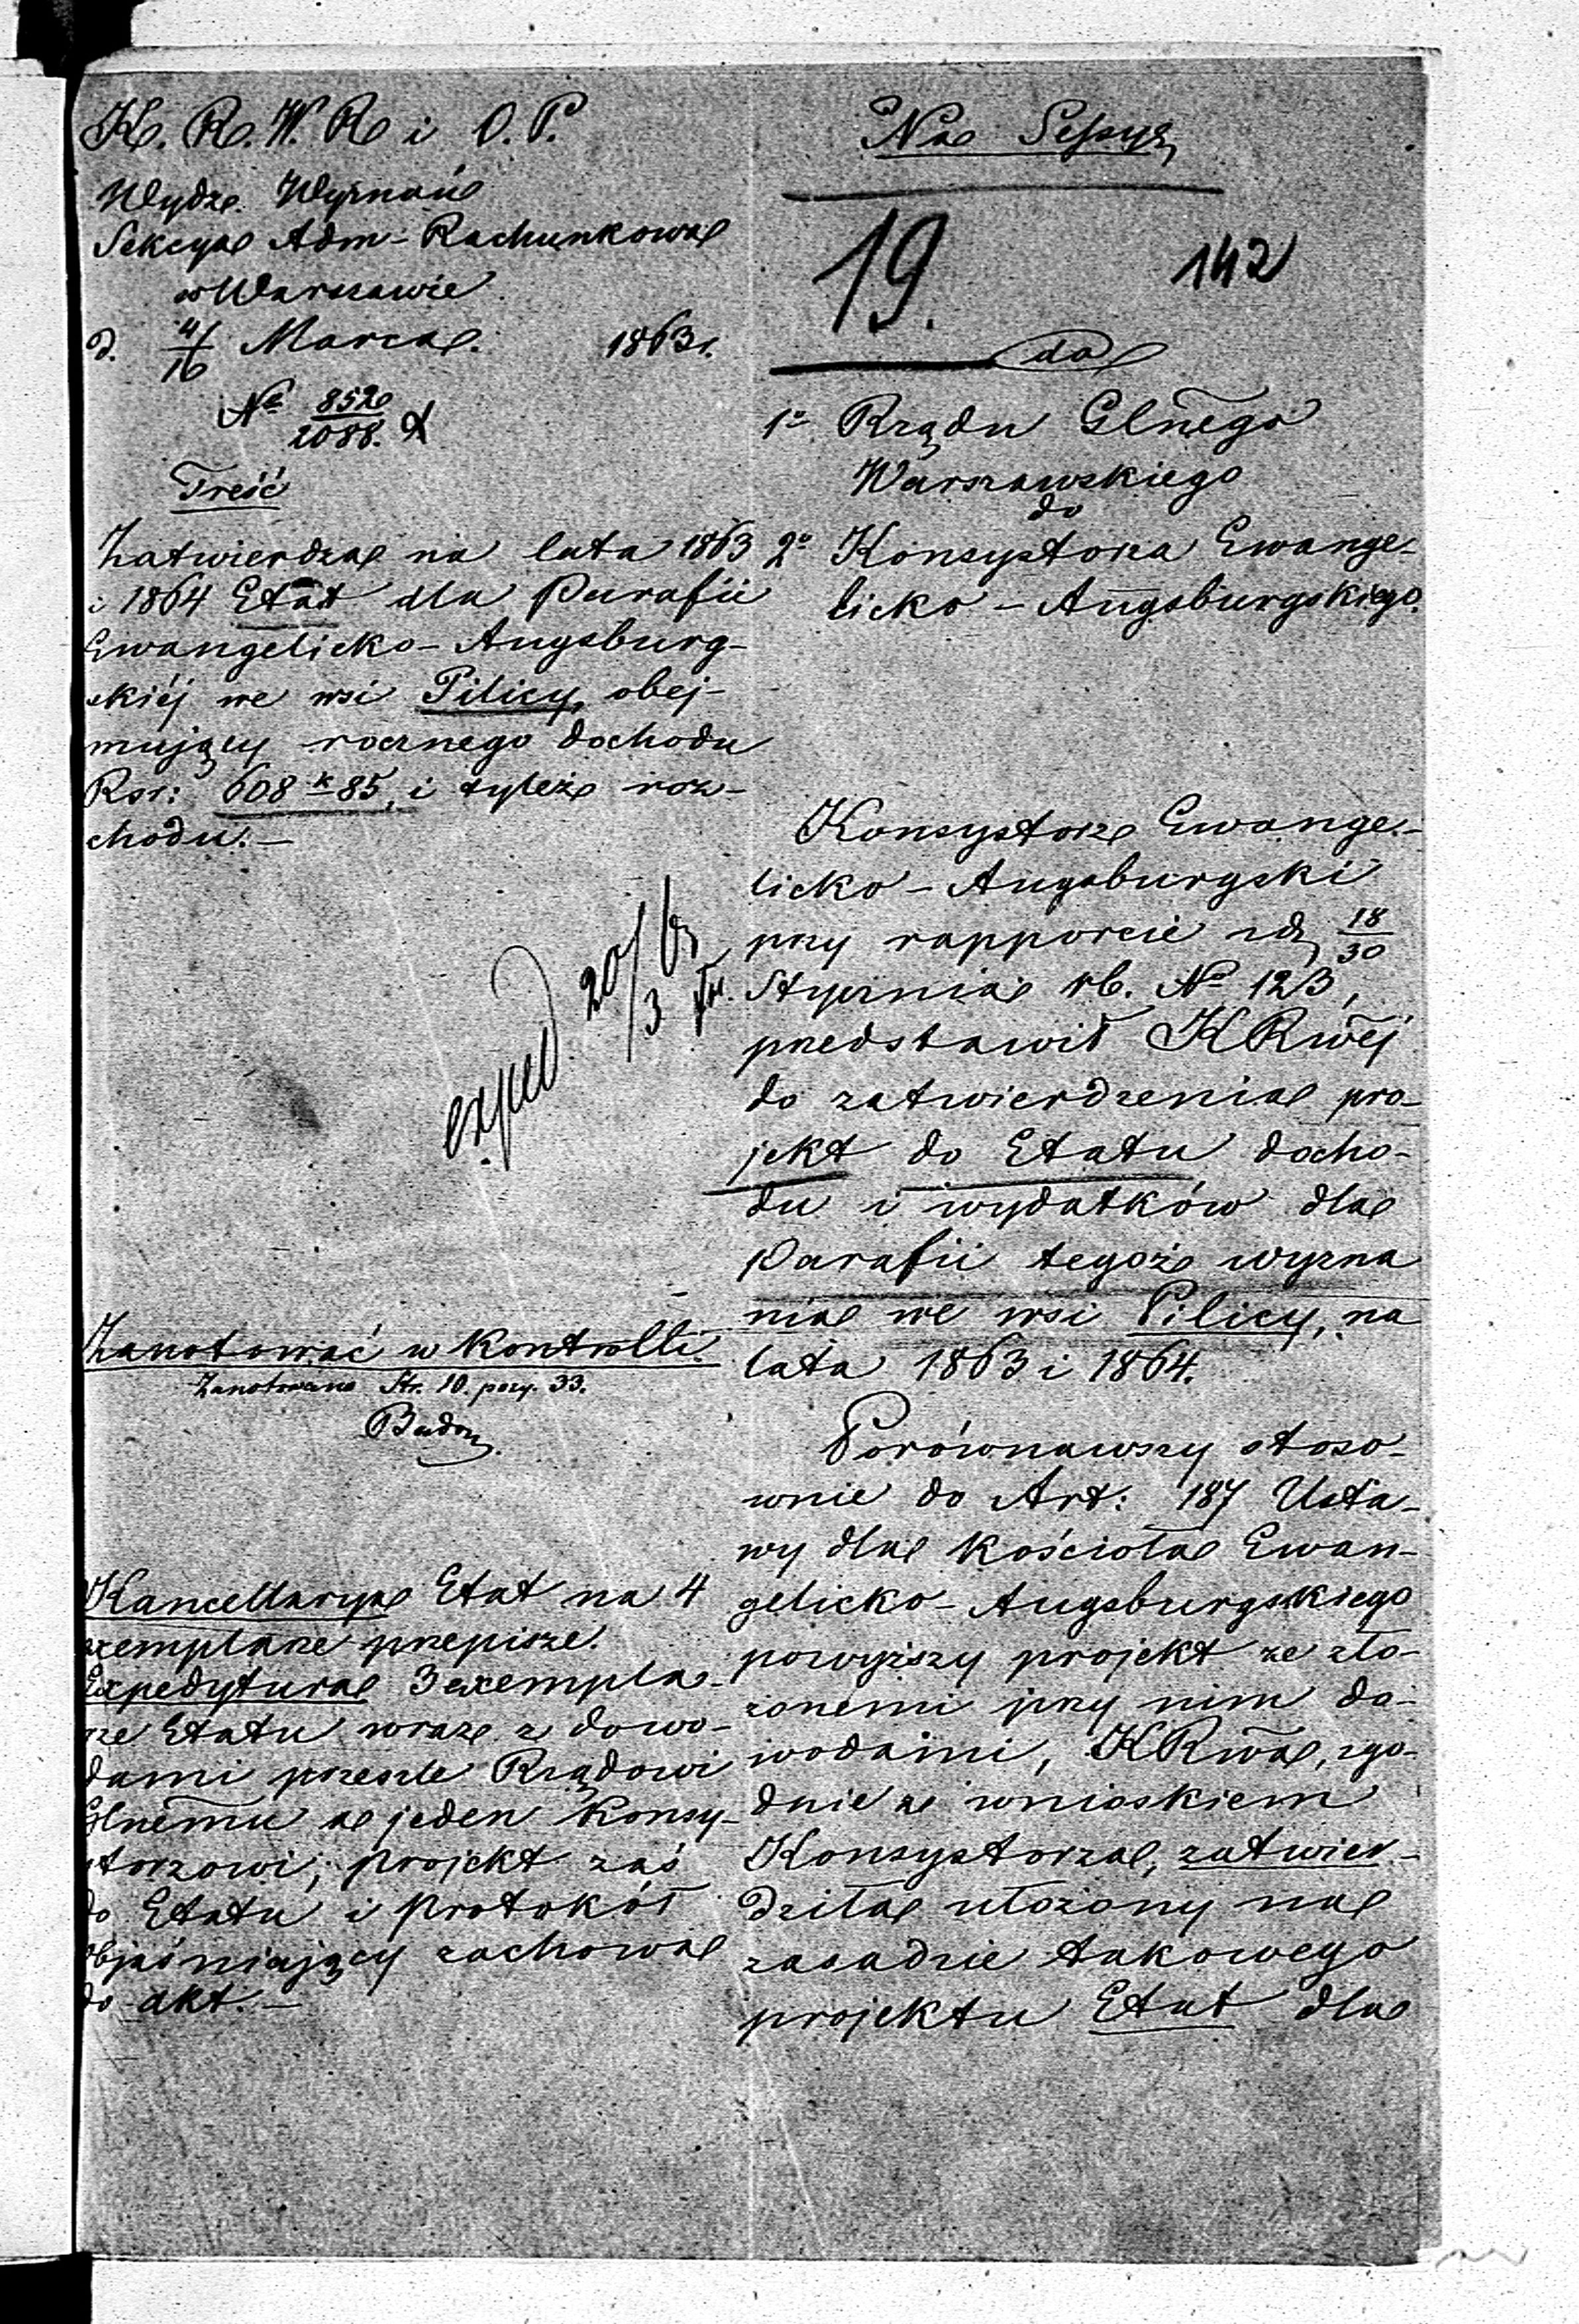 K. R. W. R. i O. P.
Wydz. Wyznań
Sekcya Adm-Rachunkowa
w Warszawie
d. 4/16 Marca. 1863 r.
№ 8520/2088.
Treść
Zatwierdza na lata 1863
i 1864 Etat dla Parafii
Ewangelicko-Augsburg-
skiéj we wsi Pilicy, obej-
mujący rocznego dochodu
Rsr: 608 k 85, i tyleż roz-
chodu.—
exped 20/3 63
Zanotować w kontrolli.
Zanotowano Str. 10. pozy. 33.
Kancellarya Etat na 4
exemplarze przepisze.
Expedytura 3 exempla-
rze Etatu wraz z dowo-
dami prześle Rządowi
Glnemu a jeden Konsy-
storzowi; projekt zaś
do Etatu i protokół
objaśniający zachowa
do akt.—
Na Sessyą
19. 142
do
1º Rządu Glnego
Warszawskiego
do
2º Konsystorza Ewange-
licko-Augsburgskiego.
Konsystorz Ewange-
licko-Augsburgski
przy rapporcie z d. 18/30
Stycznia rb. № 123,
przedstawił KRwéj
do zatwierdzenia pro-
jekt do Etatu docho-
du i wydatków dla
Parafii tegoż wyzna
nia we wsi Pilicy, na
lata 1863 i 1864.
Porównawszy stoso-
wnie do Art: 187 Usta-
wy dla kościoła Ewan-
gelicko-Augsburgskiego
powyższy projekt ze zło-
żonemi przy nim do-
wodami, KRwa, zgo-
dnie ze wnioskiem
Konsystorza, zatwier-
dziła ułożony na
zasadzie takowego
projektu Etat dla